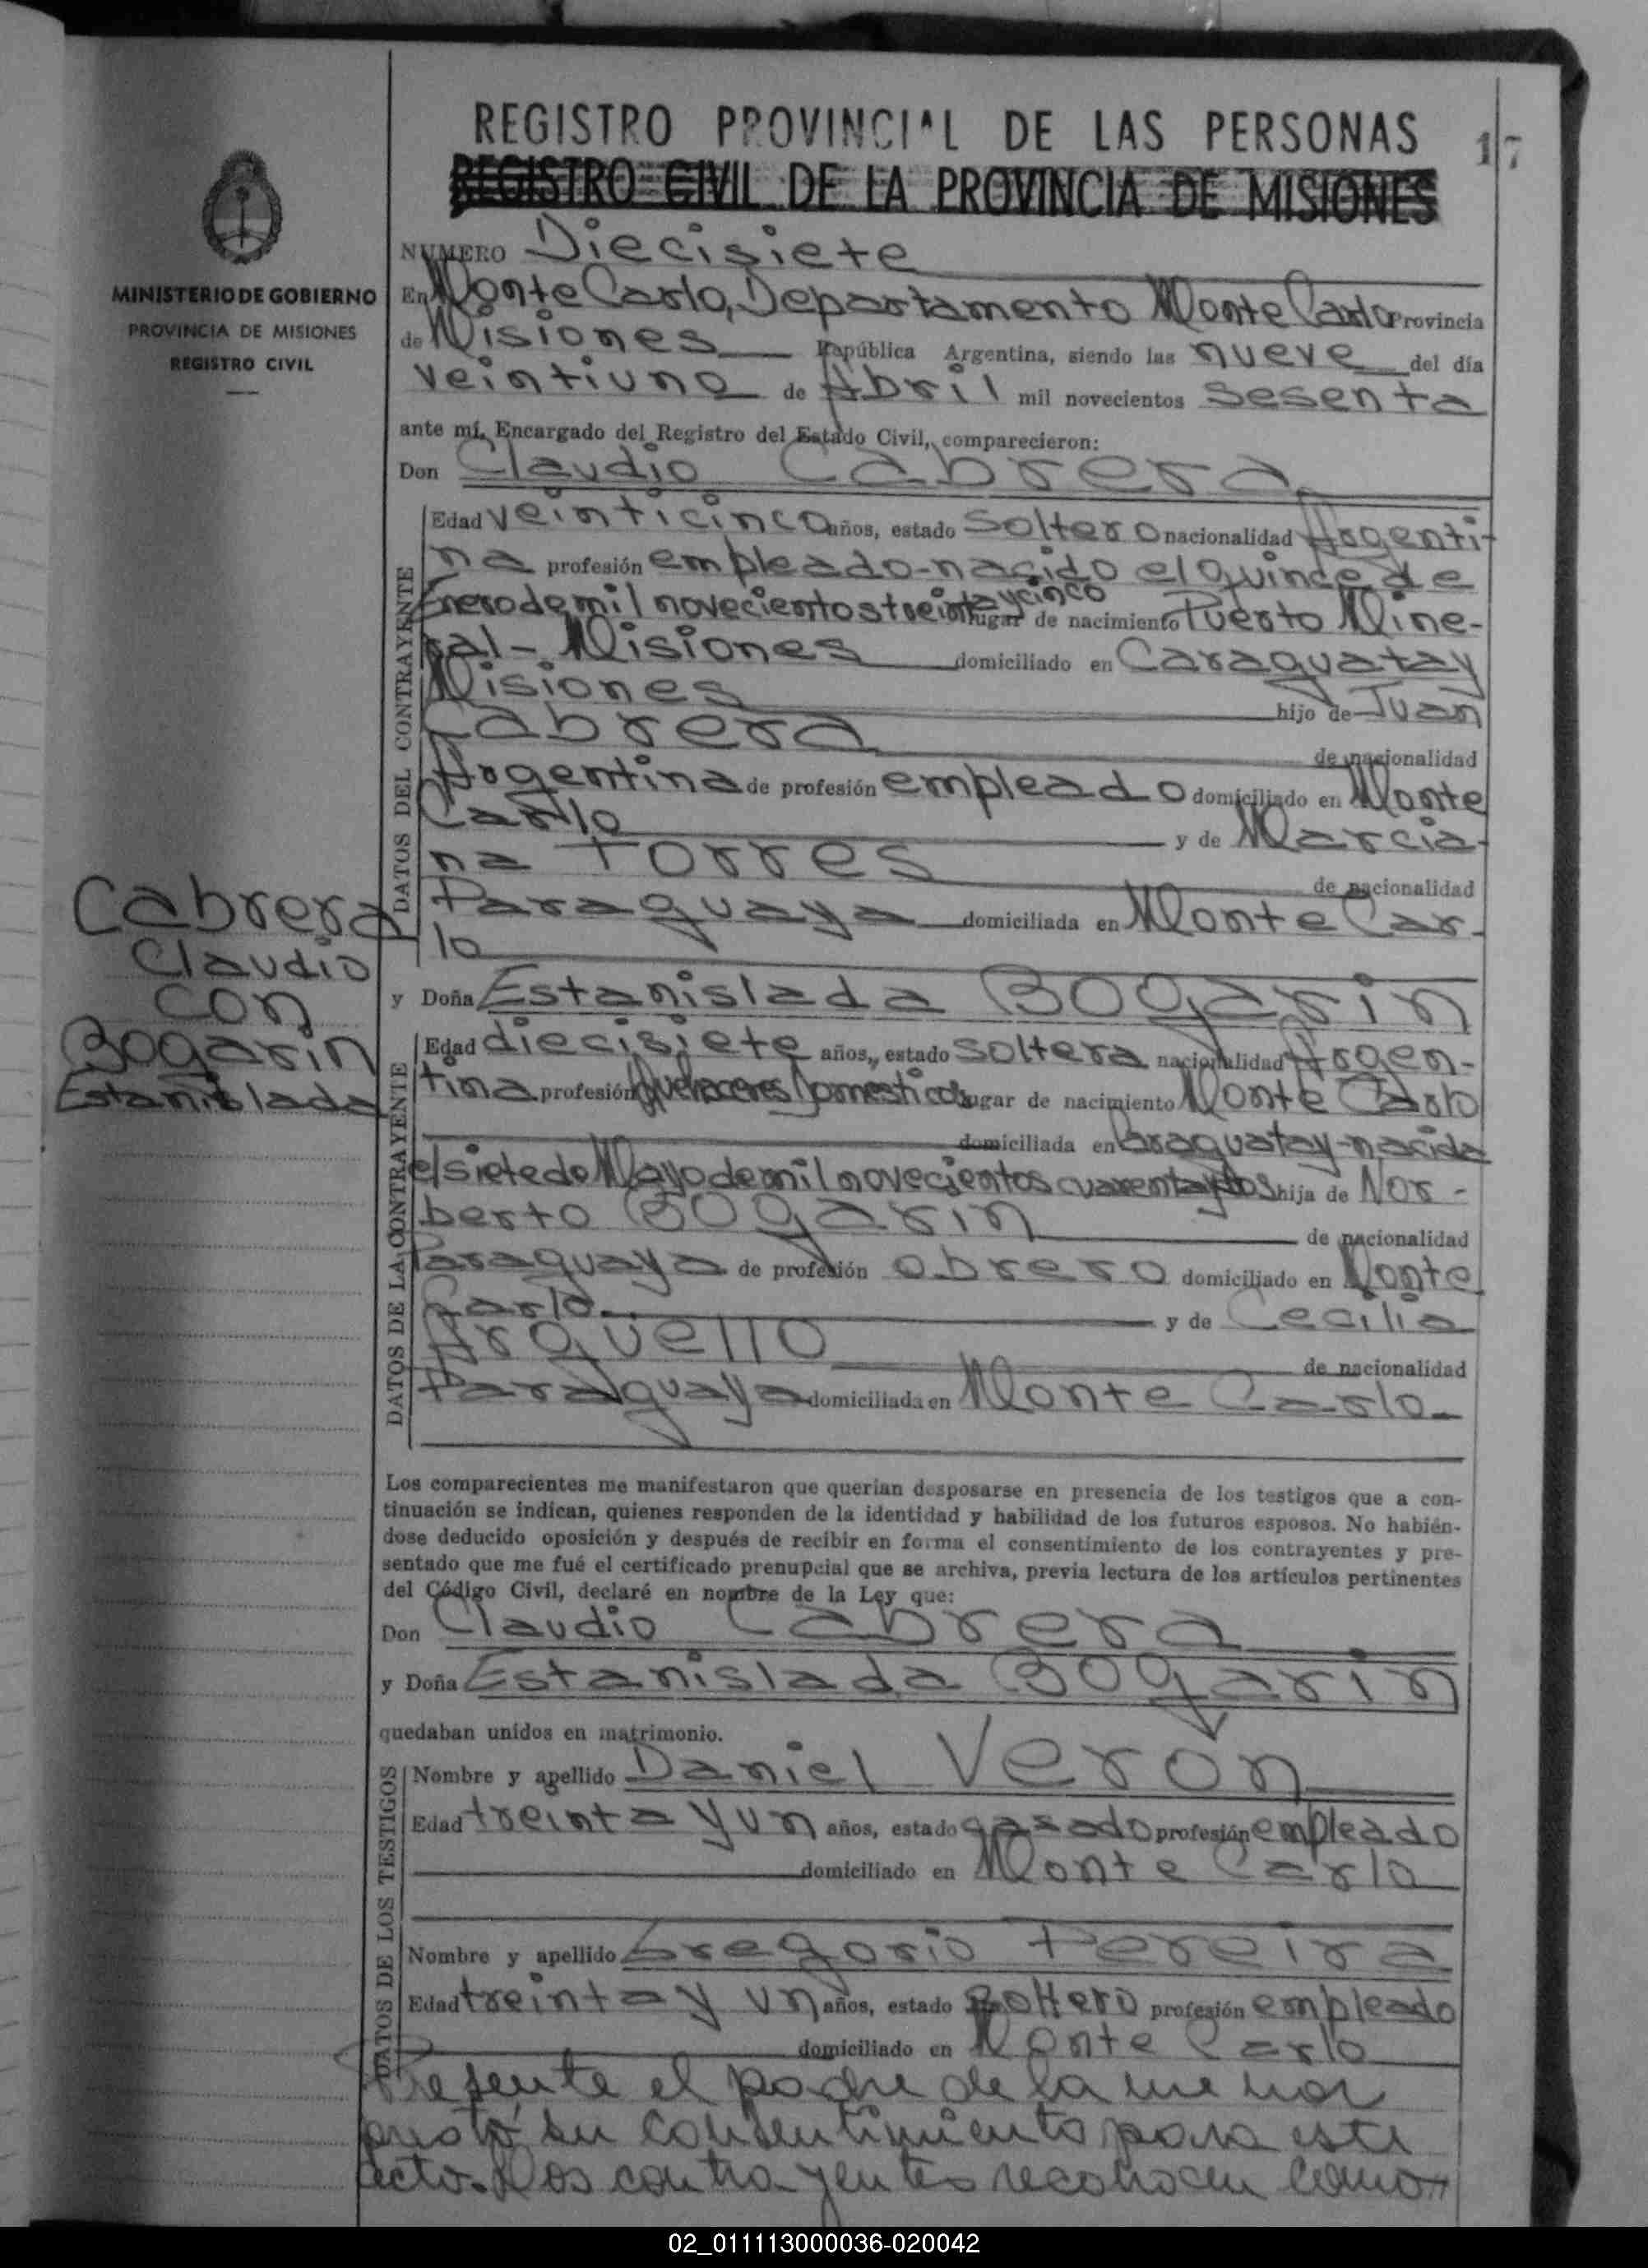 REGISTRO PROVINCIAL DE LAS PERSONAS
17
REGISTRO CIVIL DE LA PROVINCIA DE MISIONES
MINISTERIO DE GOBIERNO
PROVINCIA DE MISIONES
REGISTRO CIVIL
NUMERO Diecisiete
En Monte Carlo, Departamento Monte Carlo Provincia
de Misiones República Argentina, siendo las nueve del día
veintiuno de Abril mil novecientos sesenta
ante mí, Encargado del Registro del Estado Civil, comparecieron:
Don Claudio Cabrera
DATOS DEL CONTRAYENTE
Edad veinticinco años, estado Soltero nacionalidad Argenti-
na profesión empleado-nacido el quince de
Enero de mil novecientos treinta y cinco lugar de nacimiento Puerto Mine-
ral - Misiones domiciliado en Caraguatay
Misiones hijo de Juan
Cabrera de nacionalidad
Argentina de profesión empleado domiciliado en Monte
Carlo y de Marcia-
na Torres de nacionalidad
Paraguaya domiciliada en Monte Car-
lo
Cabrera
Claudio
con
Bogarin
Estanislada
y Doña Estanislada Bogarin
DATOS DE LA CONTRAYENTE
Edad diecisiete años, estado soltera nacionalidad Argen-
tina profesión Quehaceres Domesticos lugar de nacimiento Monte Carlo
domiciliada en Caraguatay-nacida
el siete de Mayo de mil novecientos cuarenta y dos hija de Nor-
berto Bogarin de nacionalidad
Paraguaya de profesión obrero domiciliado en Monte
Carlo. y de Cecilia
Arguello de nacionalidad
Paraguaya domiciliada en Monte Carlo.
Los comparecientes me manifestaron que querían desposarse en presencia de los testigos que a con-
tinuación se indican, quienes responden de la identidad y habilidad de los futuros esposos. No habién-
dose deducido oposición y después de recibir en forma el consentimiento de los contrayentes y pre-
sentado que me fué el certificado prenupcial que se archiva, previa lectura de los artículos pertinentes
del Código Civil, declaré en nombre de la Ley que:
Don Claudio Cabrera
y Doña Estanislada Bogarin
quedaban unidos en matrimonio.
DATOS DE LOS TESTIGOS
Nombre y apellido Daniel Veron
Edad treinta y un años, estado casado profesión empleado
domiciliado en Monte Carlo
Nombre y apellido Gregorio Pereira
Edad treinta y un años, estado soltero profesión empleado
domiciliado en Monte Carlo
Presente el padre de la menor
prestó su consentimiento para este
acto. Los contrayentes reconocen como
02_011113000036-020042